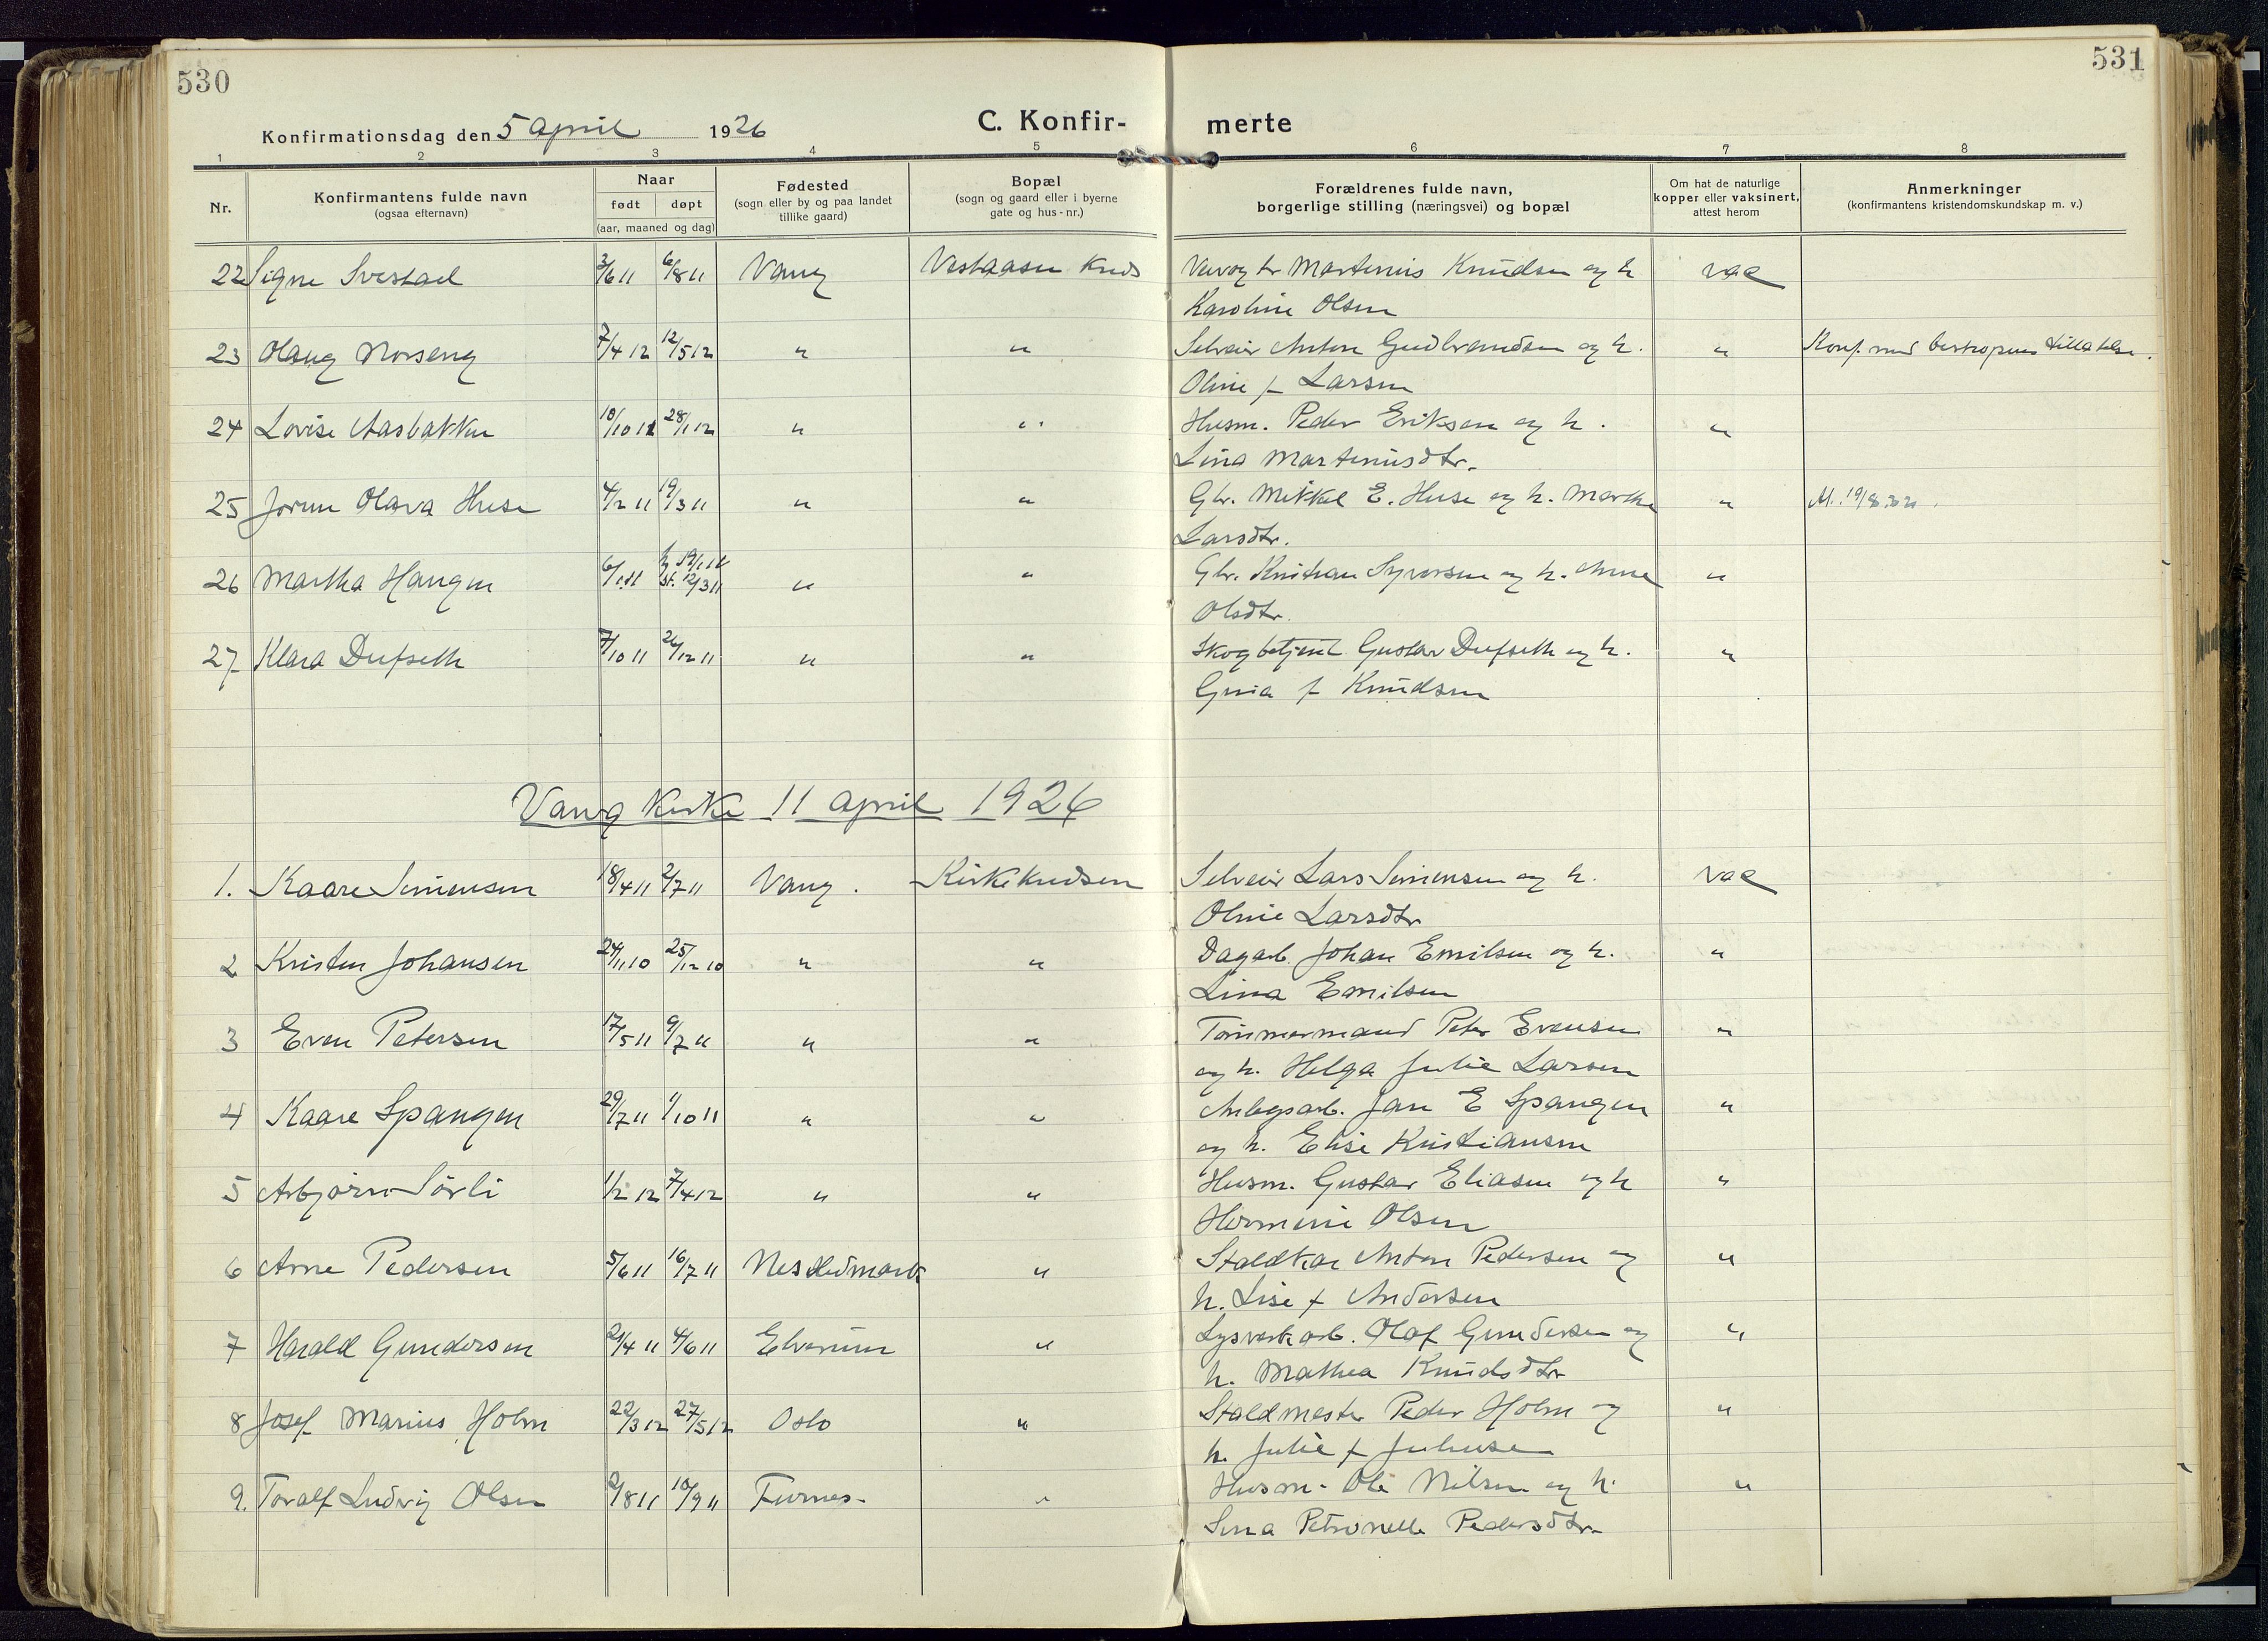 530
531
Konfirmationsdag den 5 april 1926
C. Konfir-
merte
1 2 3 4 5 6 7 8
Nr.
Konfirmantens fulde navn
(ogsaa efternavn)
Naar
født døpt
(aar, maaned og dag)
Fødested
(sogn eller by og paa landet
tillike gaard)
Bopæl
(sogn og gaard eller i byerne
gate og hus-nr.)
Forældrenes fulde navn,
borgerlige stilling (næringsvei) og bopæl
Om hat de naturlige
kopper eller vaksinert,
attest herom
Anmerkninger
(konfirmantens kristendomskundskap m. v.)
22 Signe 3/6 11 6/8 11 Vang Vestaasen Martinius Knudsen og h vac
Karoline Olsen
23 Olaug Norseng 7/4 12 12/5 12 " " Selveier Anton Gudbrandsen og h. " Konf. med bispens tillatelse.
Oline f. Larsen
24 Lovise Aasbakken 28/1 12 " " Husm. Peder Eriksen og h. "
Lina Martinusdtr.
25 Jorun Olava Huse 4/2 11 19/3 11 " " Gbr. Mikkel E. Huse og h. Marthe "
Larsdtr.
26 Martha Haugen st. 12/3 11 " " Gbr. Kristian Syversen og h. Anne "
Olsdtr.
27 Klara Dufseth 7/10 11 26/12 11 " " Skogbetjent Gustav Dufseth og h. "
f. Knudsen
Vang Kirke 11 april 1926
1. Kaare Simensen 18/4 11 2/7 11 Vang. Kirkekredsen Selveier Lars Simensen og h. vac
Oline Larsdtr
2 Kristen Johansen 24/11 10 25/12 10 " " Dagarb. Johan Emilsen og h. "
Lina Emilsen
3 Even Petersen 17/5 11 9/7 11 " " Tømmermand Peter Evensen "
og h. Helga Julie Larsen
4 Kaare Spangen 29/7 11 1/10 11 " " Anlegsarb. Jan E Spangen "
og h. Elise Kristiansen
5 Asbjørn Sørli 1/2 12 7/4 12 " " Husm. Gustav Eliasen og h "
Hermine Olsen
6 Arne Pedersen 5/6 11 16/7 11 Nes Hedmark " Staldkar Anton Pedersen og "
h. Lise f Andersen
7 Harald Gundersen 2/4 11 4/6 11 Elverum " Lysverkarb. Olaf Gundersen og "
h. Mathea Knudsdtr
8 Josef Marius Holm 22/3 12 27/5 12 Oslo " Staldmester Peder Holm og "
h. Julie f Juliusen
9. Toralf Ludvig Olsen 2/8 11 10/9 11 Furnes. " Husm. Ole Nilsen og h. "
Petronelle Pedersdtr.